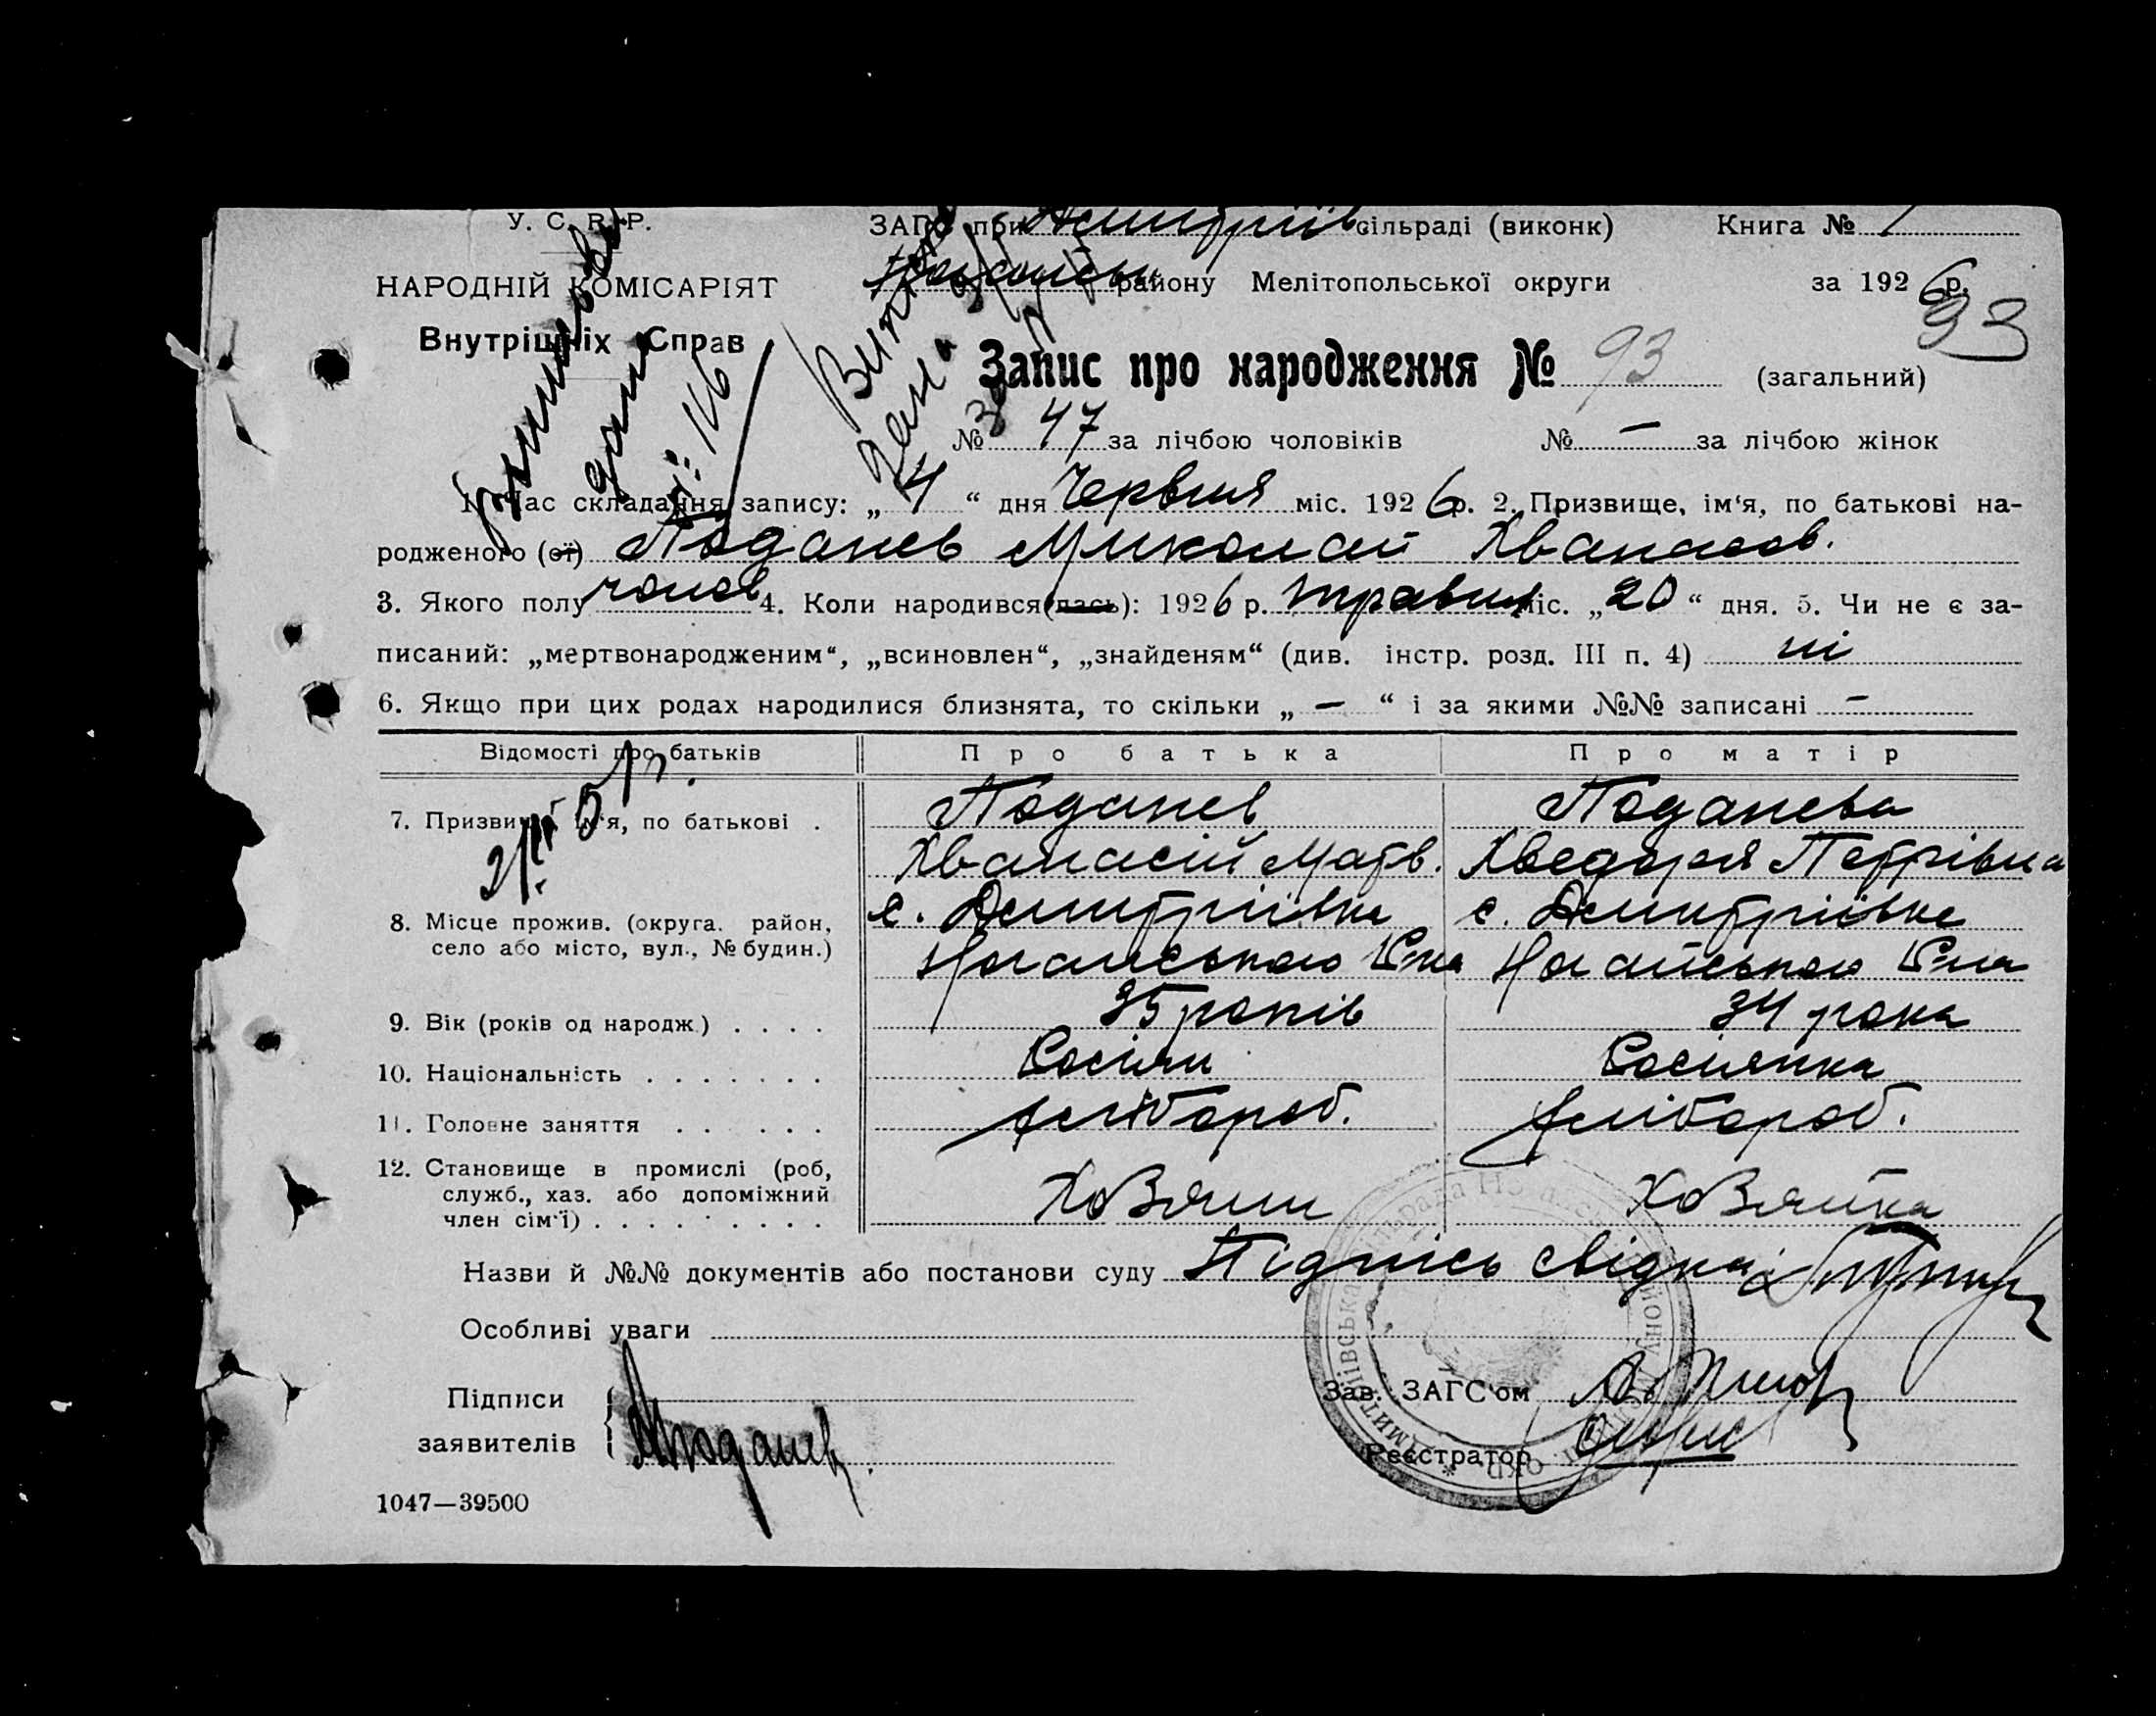 У. С. Р. Р.
ЗАГС при Дмитріїв. сільраді (виконк) Книга № 1
НАРОДНІЙ КОМІСАРІЯТ
Ногайськ району Мелітопольської округи за 1926 р.
93
Внутрішніх Справ
Запис про народження № 93 (загальний)
№ 47 за лічбою чоловіків № — за лічбою жінок
дана
№ 116
1. Час складання запису: „4“ дня Червня міс. 1926 р. 2. Призвище, ім'я, по батькові на-
родженого (ої) Поданев Миколай Хванасов.
3. Якого полу чолов 4. Коли народився(лась): 1926 р. травня міс. „20“ дня. 5. Чи не є за-
писаний: „мертвонародженим“, „всиновлен“, „знайденям“ (див. інстр. розд. III п. 4) ні
6. Якщо при цих родах народилися близнята, то скільки „ — “ і за якими №№ записані —
Відомості про батьків Про батька Про матір
7. Призвище, ім'я, по батькові . Поданев Поданева
Хванасій Матв. Хведора Петрівна
8. Місце прожив. (округа. район, с. Дмитріївка с. Дмитріївка
село або місто, вул., № будин.) Ногайського Р-на Ногайського Р-на
9. Вік (років од народж.) . . . . 35 років 34 рока
10. Національність . . . . . . . Росіян Росіянка
11. Головне заняття . . . . . . хлібороб. хлібороб.
12. Становище в промислі (роб,
служб., хаз. або допоміжний Хозяин Хозяйка
член сім'ї) . . . . . . . . .
Назви й №№ документів або постанови суду Підпись свідка
Особливі уваги
Підписи
заявителів Поданев
Зав. ЗАГС'ом
Реєстратор
1047—39500